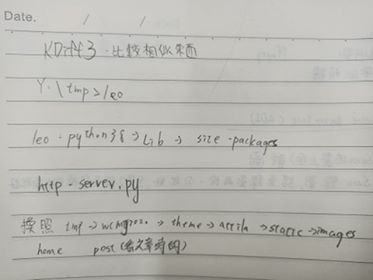 Date. / /
KDiff3 - 比較相似東西
Y:\tmp>leo
leo - python38 → Lib → site-packages
http-server.py
tmp → → theme → attila → static → images
home post